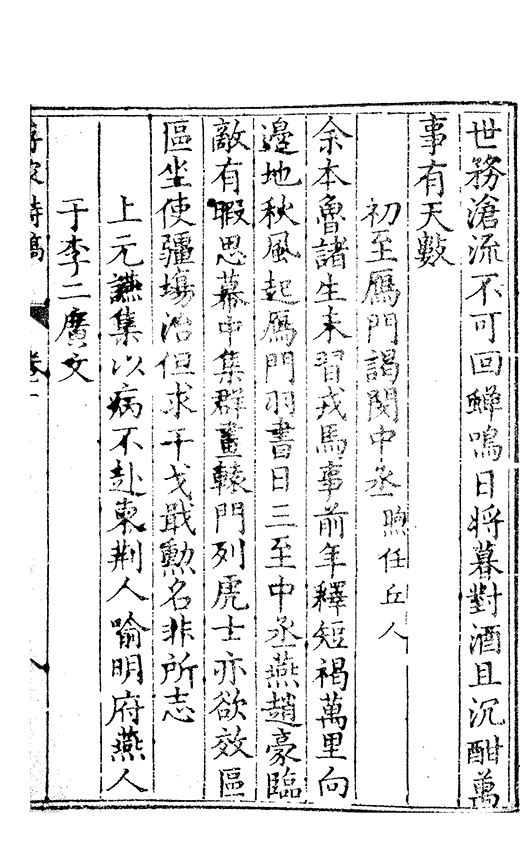 世務滄流不可回蟬鳴日將暮對酒且沉酣萬
事有天數
初至鴈門謁閔中丞煦任丘人
余本魯諸生未習戎馬事前年釋短褐萬里向
邊地秋風起鴈門羽書日三至中丞燕趙豪臨
敵有暇思幕中集群畫轅門列虎士亦欲效區
區坐使疆場治但求干戈戢勲名非所志
上元讌集以病不赴柬荆人喻明府燕人
于李二廣文
詩稿